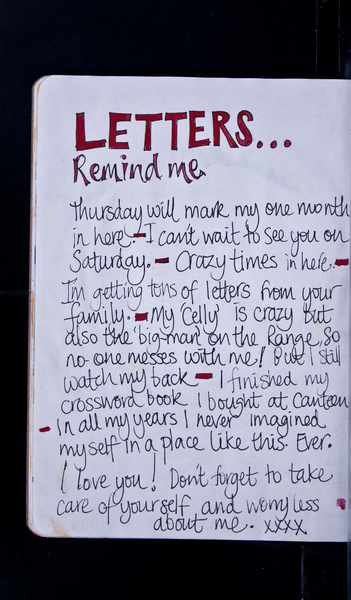 LETTERS...
Remind me
Thursday will mark my one month
in here. - I can't wait to see you on
Saturday. - Crazy times in here. -
I'm getting tons of letters from your
family. - My 'Celly' is crazy but
also the 'big-man' on the Range, So
no-one messes with me! But I still
watch my back - I finished my
crossword book I bought at Canteen
- In all my years I never imagined
myself in a place like this. Ever.
I love you! Don't forget to take
care of yourself, and worry less
about me. xxxx